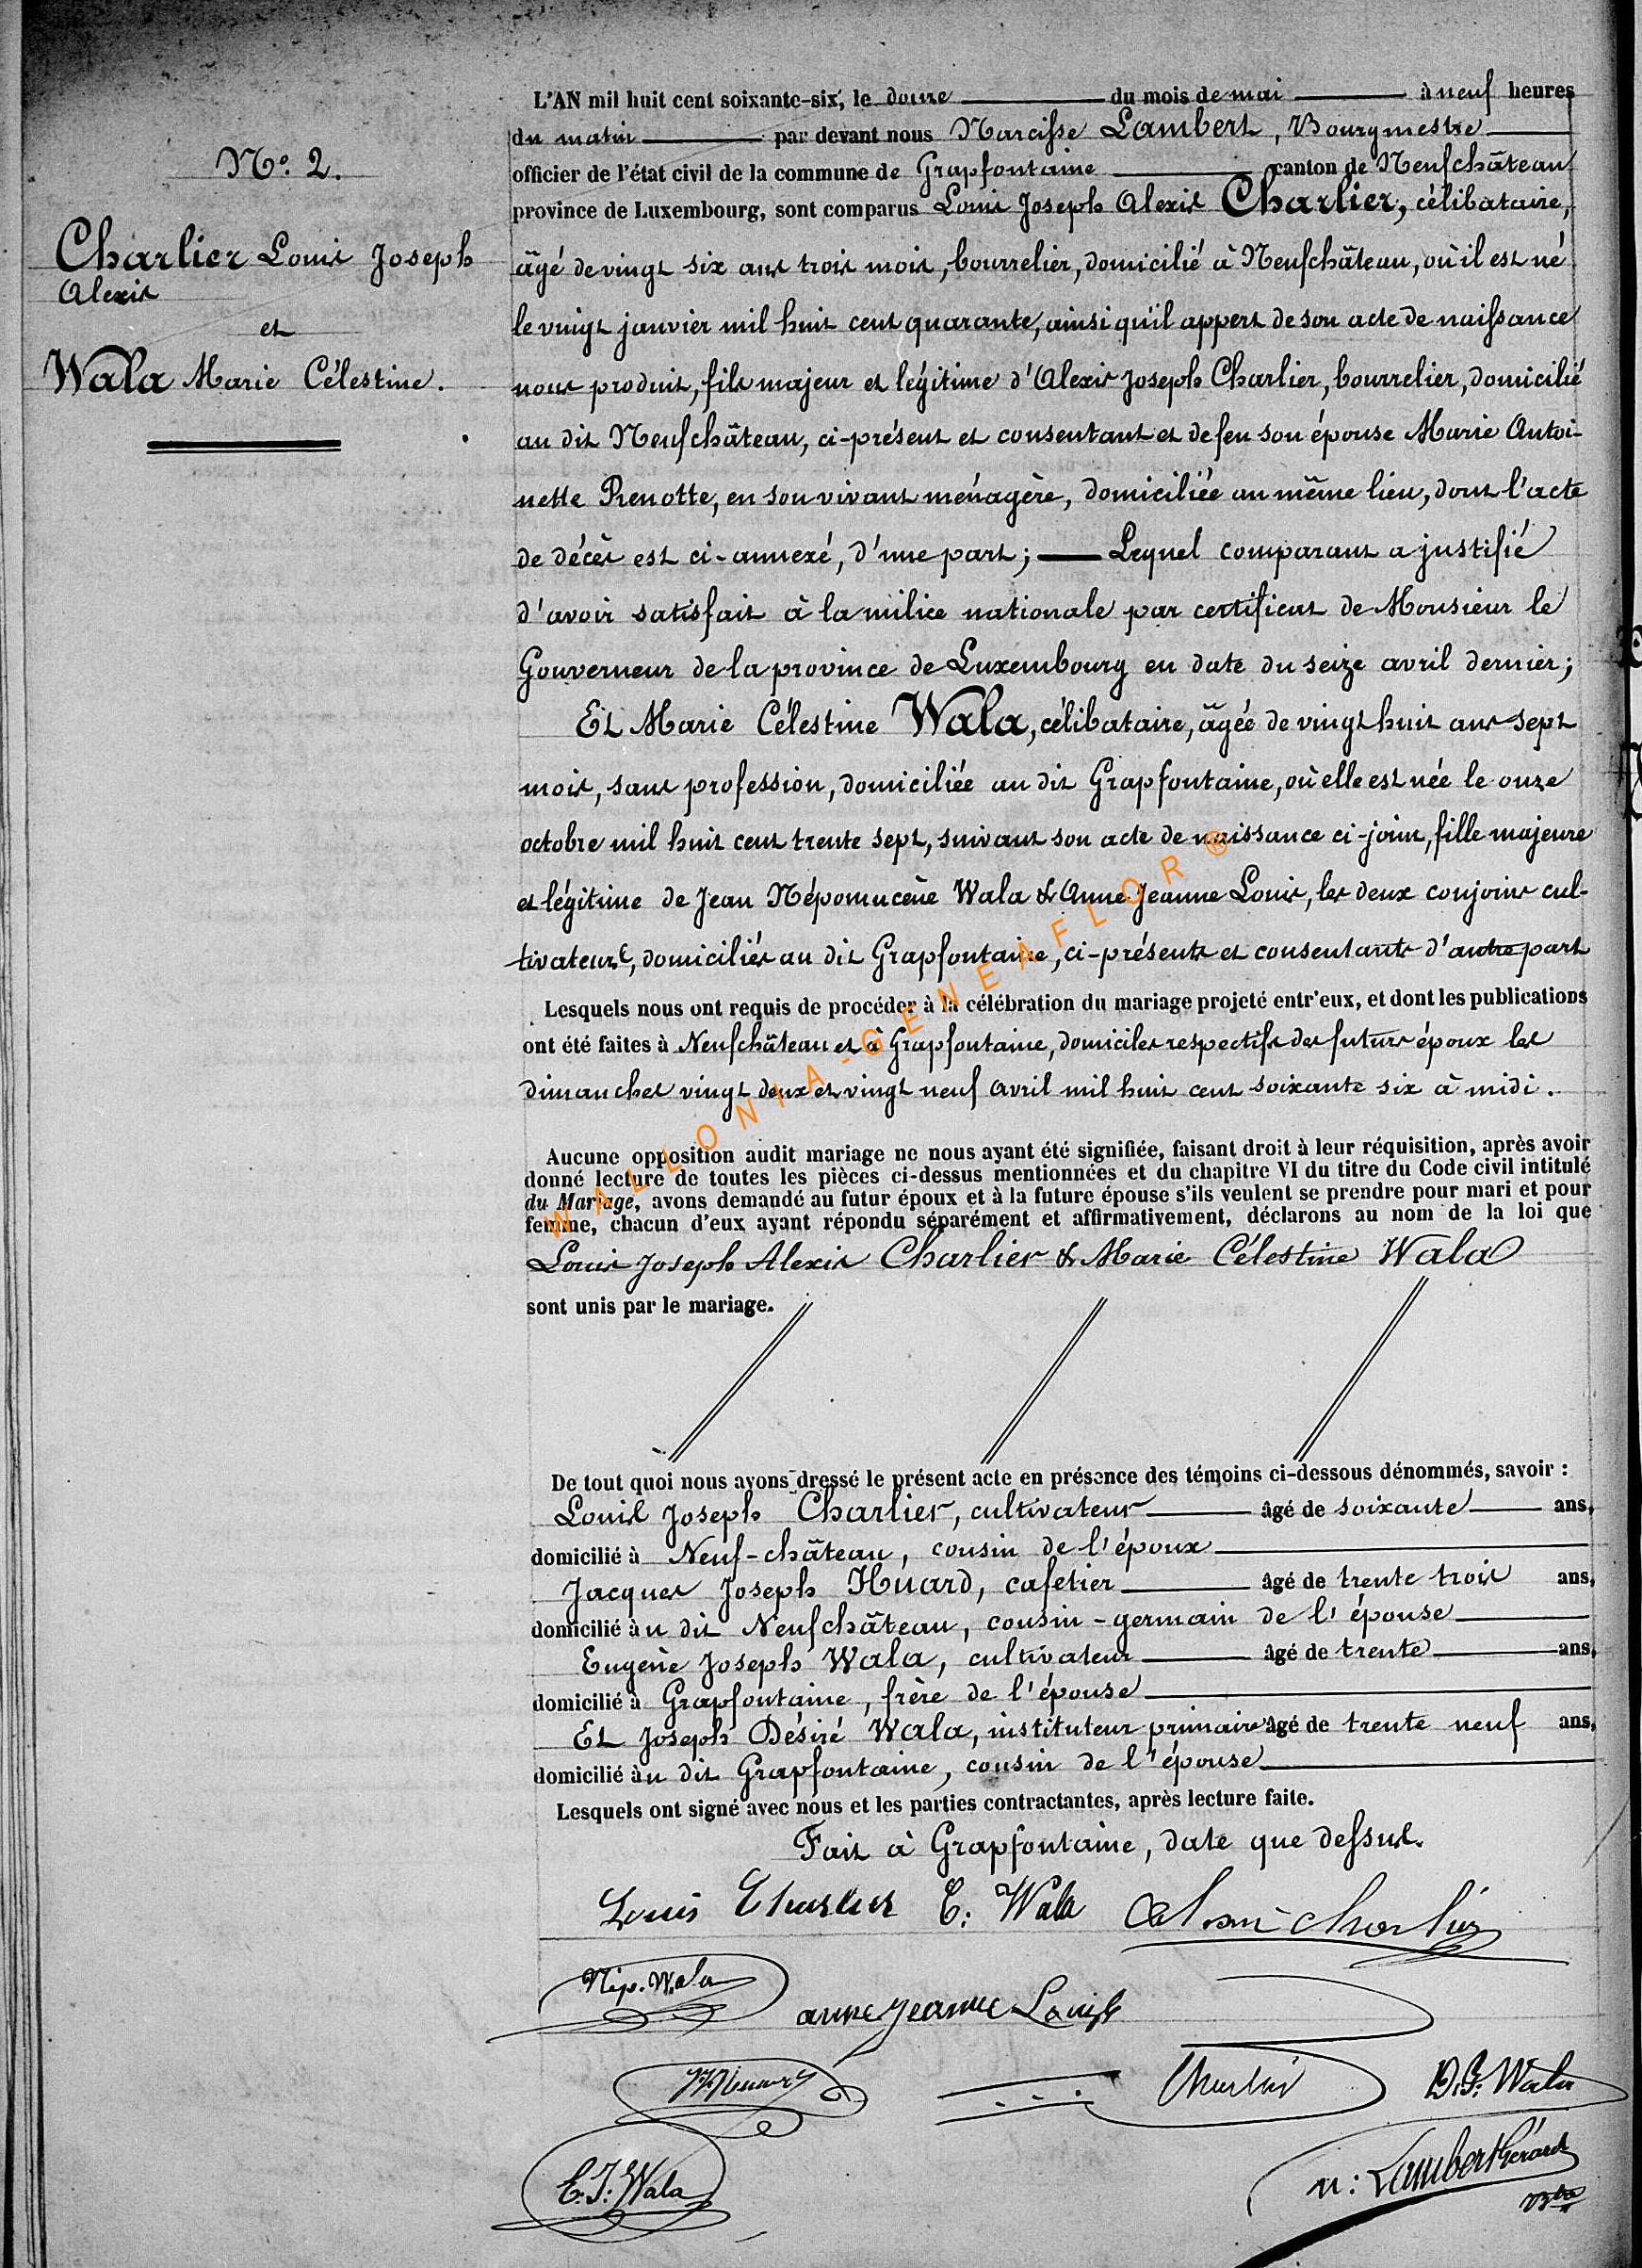 L'AN mil huit cent soixante-six, le douze du mois de mai à neuf heures
du matin par devant nous Narcisse Lambert, Bourgmestre
officier de l'état civil de la commune de Grapfontaine canton de Neufchâteau
province de Luxembourg, sont comparus Louis Joseph Alexis Charlier, célibataire,
âgé de vingt six ans trois mois, bourrelier, domicilié à Neufchâteau, où il est né
le vingt janvier mil huit cent quarante, ainsi qu'il appert de son acte de naissance
nous produit, fils majeur et légitime d'Alexis Joseph Charlier, bourrelier, domicilié
au dit Neufchâteau, ci-présent et consentant et de feu son épouse Marie Antoi-
nette Prenotte, en son vivant ménagère, domiciliée au même lieu, dont l'acte
de décès est ci-annexé, d'une part; Lequel comparant a justifié
d'avoir satisfait à la milice nationale par certificat de Monsieur le
Gouverneur de la province de Luxembourg en date du seize avril dernier;
Et Marie Célestine Wala, célibataire, âgée de vingt huit ans sept
mois, sans profession, domiciliée au dit Grapfontaine, où elle est née le onze
octobre mil huit cent trente sept, suivant son acte de naissance ci-joint, fille majeure
et légitime de Jean Népomucène Wala & Anne Jeanne Louis, les deux conjoins cul-
tivateurs, domiciliés au dit Grapfontaine, ci-présents et consentants d'autre part
Lesquels nous ont requis de procéder à la célébration du mariage projeté entr'eux, et dont les publications
ont été faites à Neufchâteau et à Grapfontaine, domiciles respectifs des futurs époux les
dimanches vingt deux et vingt neuf avril mil huit cent soixante six à midi.
Aucune opposition audit mariage ne nous ayant été signifiée, faisant droit à leur réquisition, après avoir
donné lecture de toutes les pièces ci-dessus mentionnées et du chapitre VI du titre du Code civil intitulé
du Mariage, avons demandé au futur époux et à la future épouse s'ils veulent se prendre pour mari et pour
femme, chacun d'eux ayant répondu séparément et affirmativement, déclarons au nom de la loi que
Louis Joseph Alexis Charlier & Marie Célestine Wala
sont unis par le mariage.
De tout quoi nous avons dressé le présent acte en présence des témoins ci-dessous dénommés, savoir :
Louis Joseph Charlier, cultivateur âgé de soixante ans,
domicilié à Neuf-château, cousin de l'époux
Jacques Joseph Huard, cafetier âgé de trente trois ans,
domicilié àu dit Neufchâteau, cousin-germain de l'épouse
Eugène Joseph Wala, cultivateur âgé de trente ans,
domicilié à Grapfontaine, frère de l'épouse
Et Joseph Désiré Wala, instituteur primaire âgé de trente neuf ans,
domicilié àu dit Grapfontaine, cousin de l'épouse
Lesquels ont signé avec nous et les parties contractantes, après lecture faite.
Fait à Grapfontaine, date que dessus.
Louis Charlier C. Wala Charlier
Nép. Wala
anne jeanne Louis
Charlier D.J. Wala
E.J. Wala
N: Lambert Gérard
Btre
No. 2.
Charlier Louis Joseph
Alexis
et
Wala Marie Célestine.
WALLONIA-GENEAFLOR®